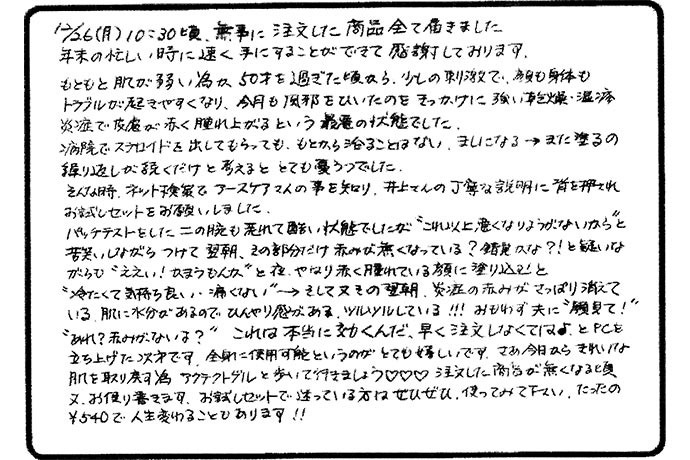 12/26(月)10:30頃、無事に注文した商品全て届きました
年末の忙しい時に速く手にすることができて感謝しております。
もともと肌が弱い為か50才を過ぎた頃から、少しの刺激で、顔も身体も
トラブルが起きやすくなり、今月も風邪をひいたのをきっかけに強い乾燥・湿疹
炎症で皮膚が赤く腫れ上がるという最悪の状態でした。
病院でステロイドを出してもらっても、もとから治ることはない、ましになる→また塗るの
繰り返しが続くだけと考えるととても憂うつでした。
そんな時、ネット検索でアースケアさんの事を知り、井上さんの丁寧な説明に背を押され
お試しセットをお願いしました。
パッチテストをした二の腕も荒れて酷い状態でしたが"これ以上悪くなりようがないから"と
苦笑いしながらつけて翌朝、その部分だけ赤みが無くなっている?錯覚かな?!と疑いな
がらも"ええい!かまうもんか"と夜、やはり赤く腫れている顔に塗り込むと
"冷たくて気持ち良い・痛くない"→そして又その翌朝、炎症の赤みがさっぱり消えて
いる、肌に水分があるのでひんやり感がある、ツルツルしている!!!おもわず夫に"顔見て!"
"あれ?赤みがないな?" これは本当に効くんだ、早く注文しなくては♪とPCを
立ち上げた次第です。全身に使用可能というのがとても嬉しいです。さあ今日からきれいな
肌を取り戻す為 アクテクトゲルと歩いて行きましょう♡♡♡ 注文した商品が無くなる頃
又、お便り書きます。お試しセットで迷っている方はぜひぜひ、使ってみて下さい。たったの
¥540で人生変わることもあります!!